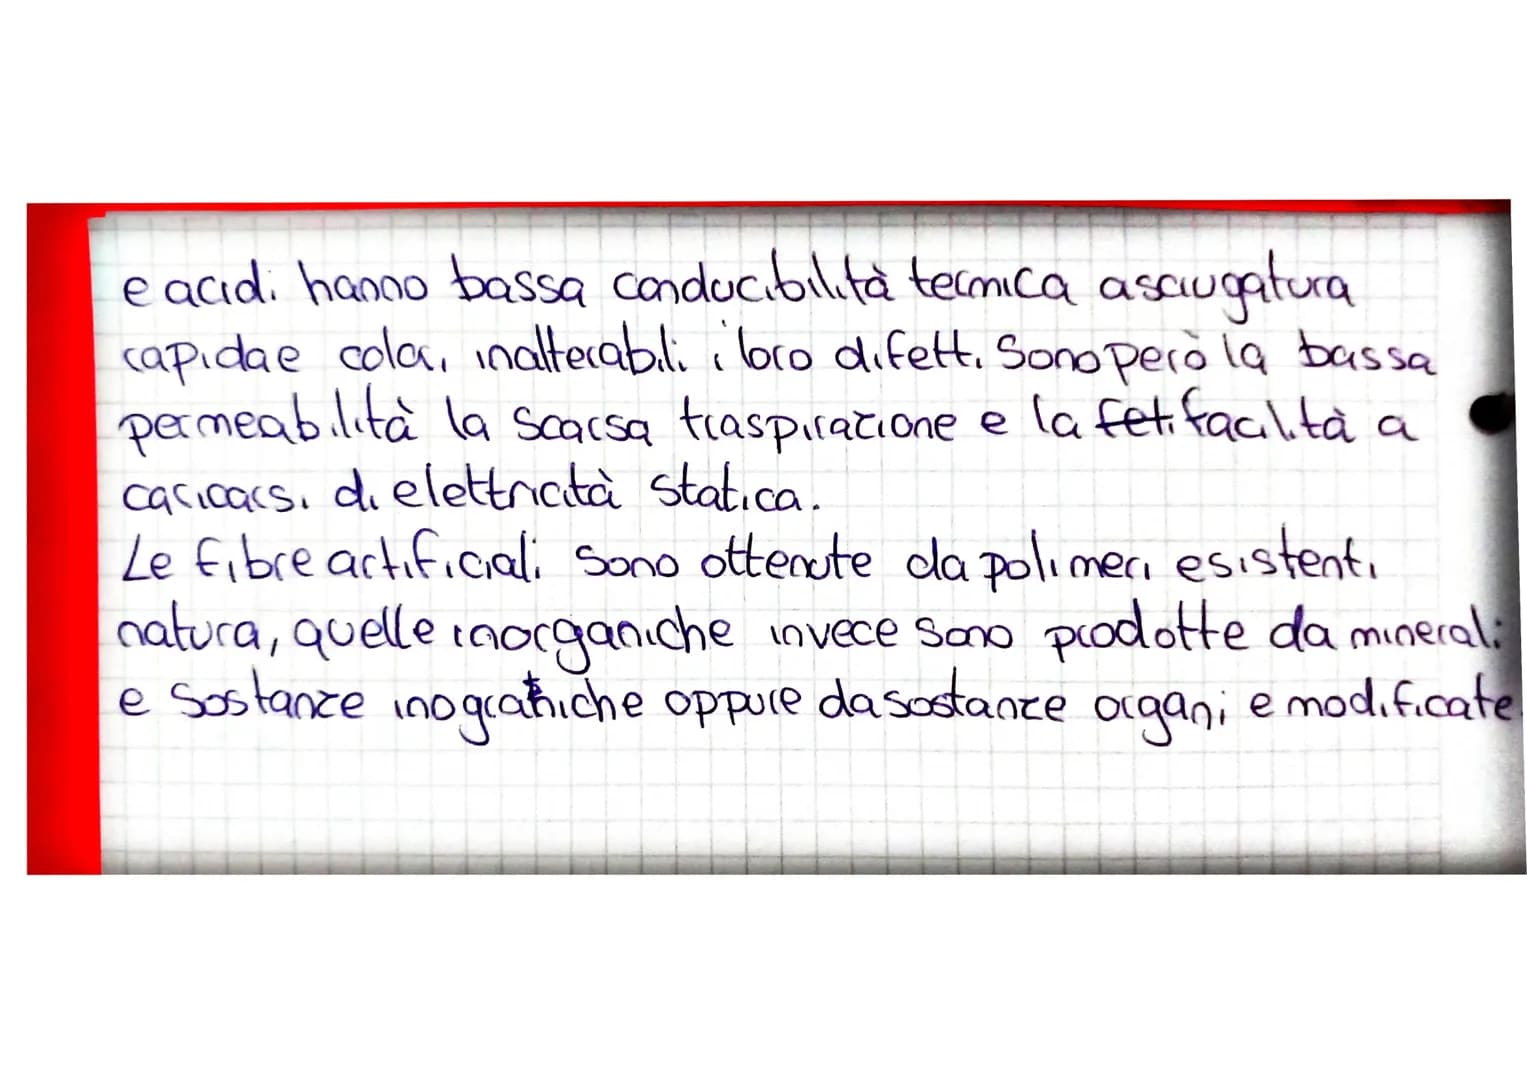 e acidi hanno bassa conducibilità termica asciugatura
rapida e colori inalterabili i loro difetti sono però la bassa
permeabilità la scarsa traspirazione e la facilità a
caricarsi di elettricità statica.
Le fibre artificiali sono ottenute da polimeri esistenti
natura, quelle inorganiche invece sono prodotte da minerali
e sostanze oppure da sostanze organi e modificate